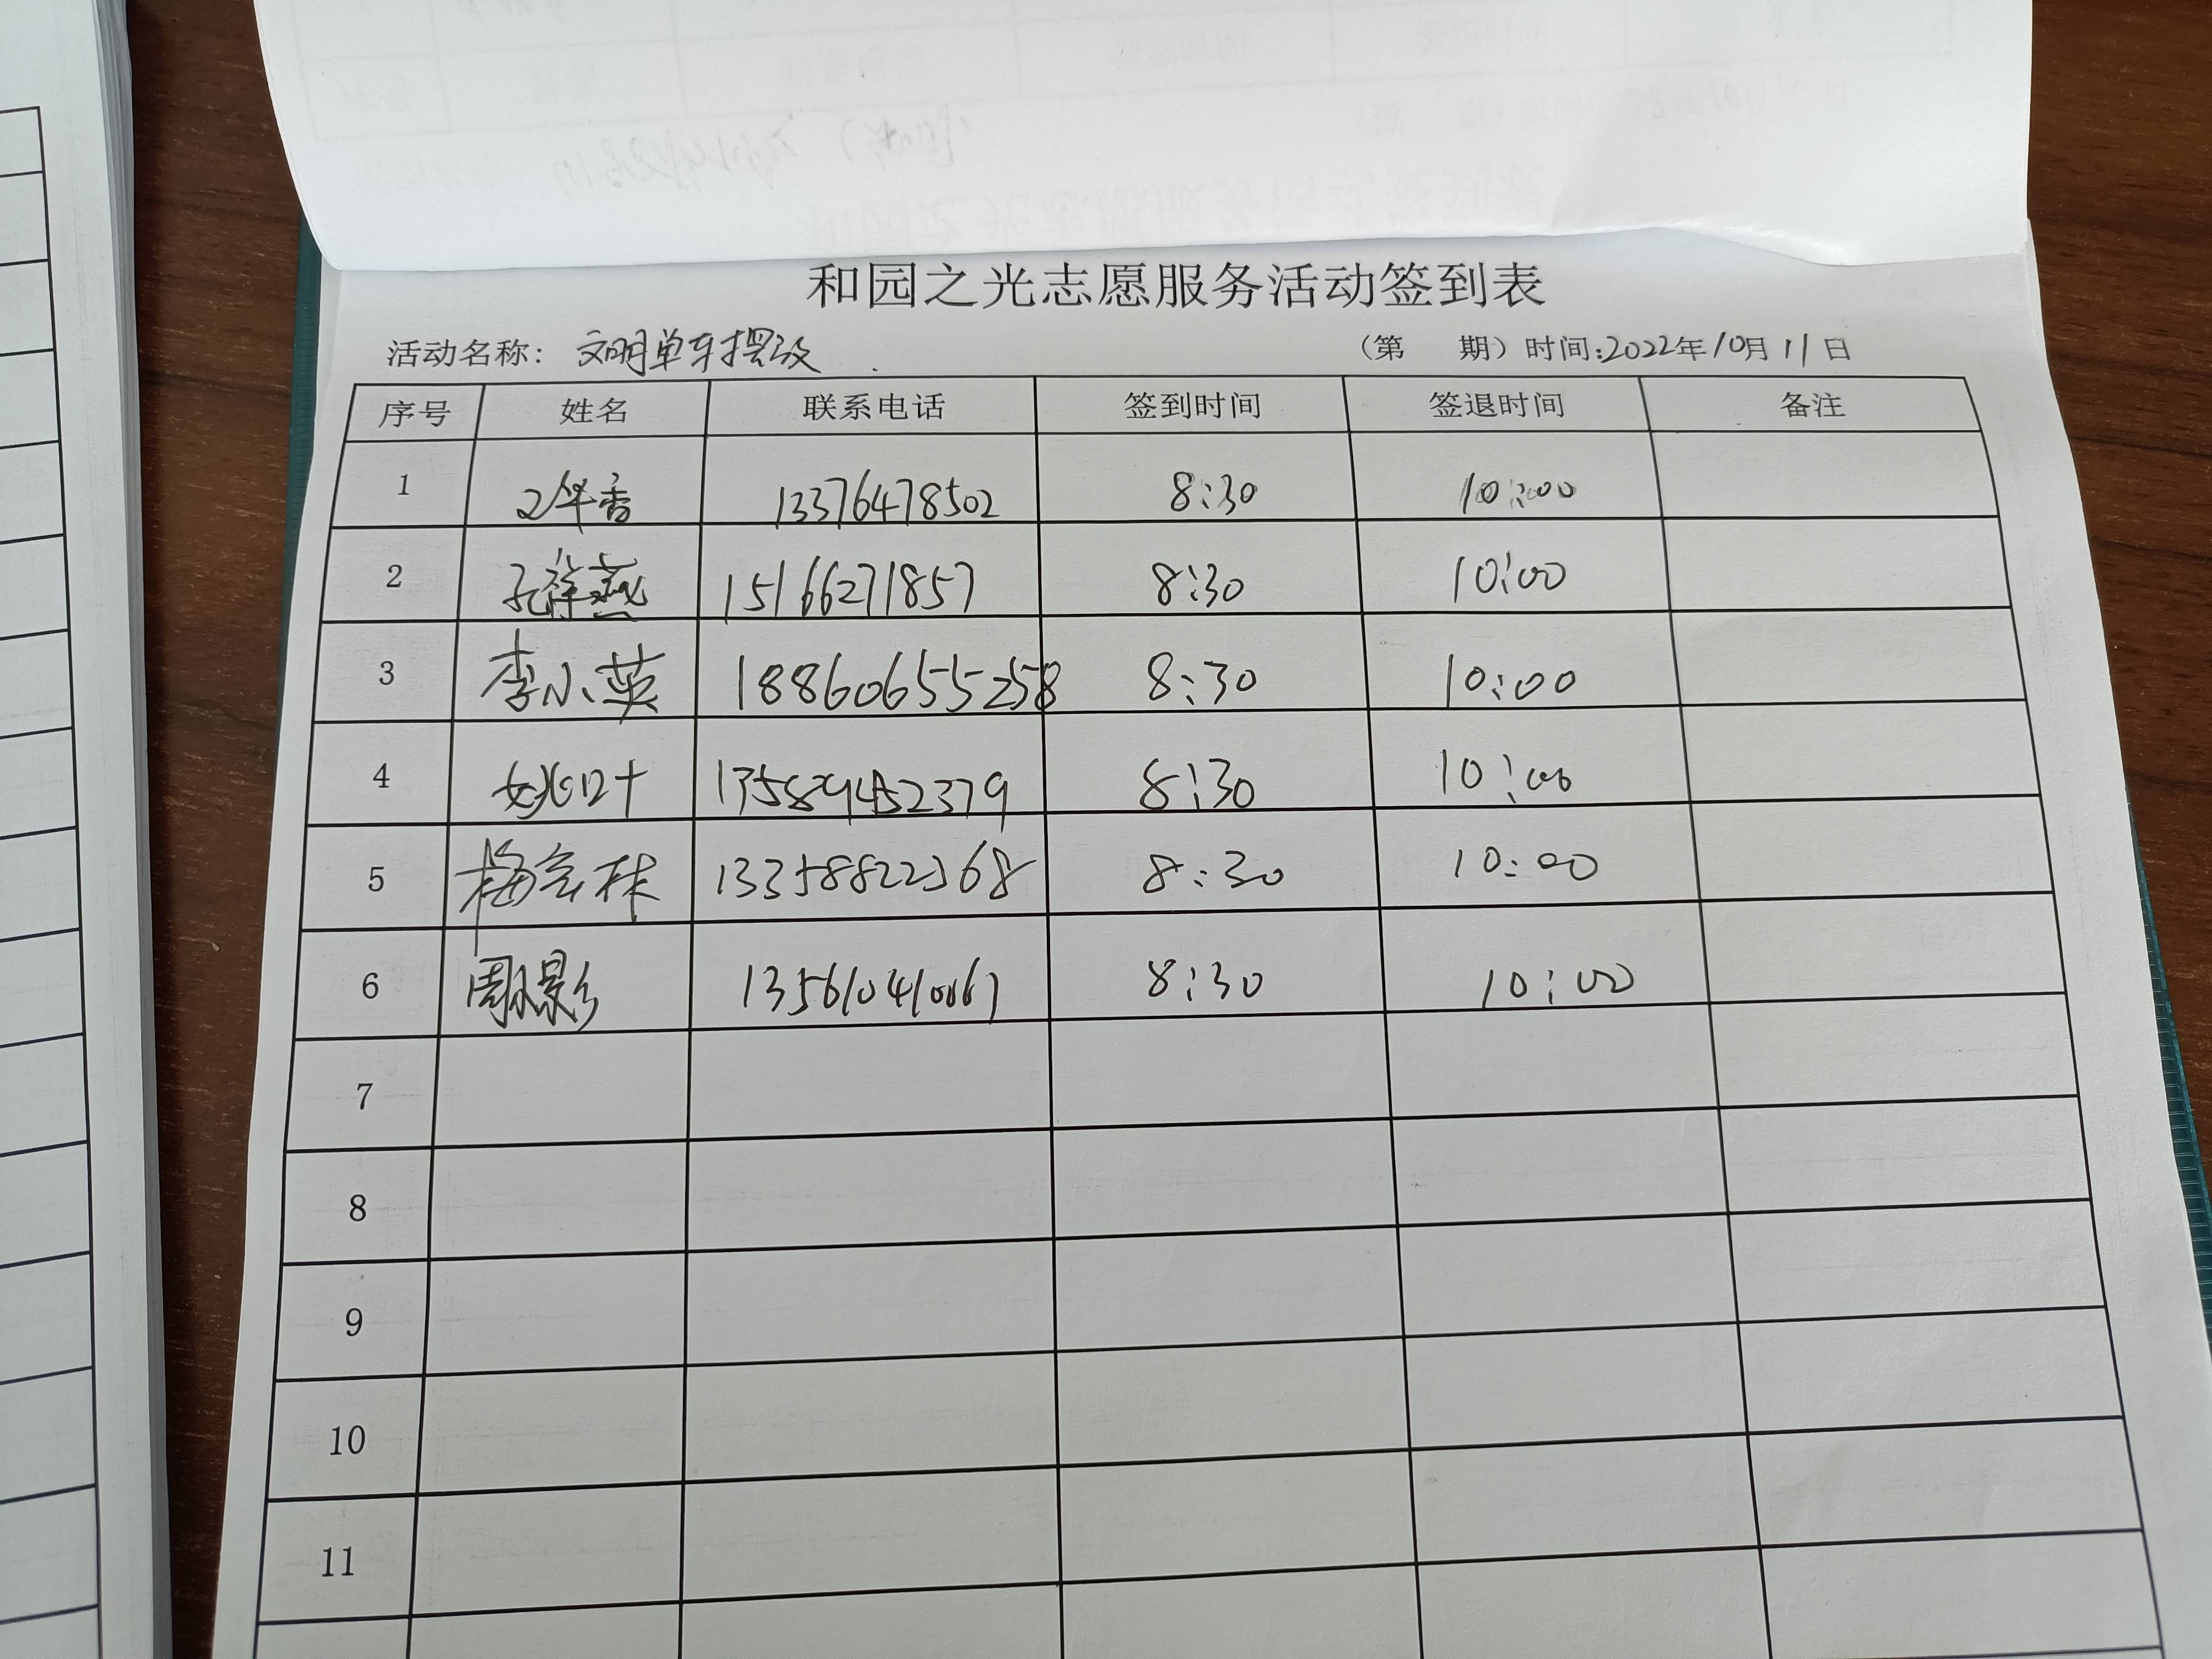 和园之光志愿服务活动签到表
活动名称：文明单车摆放 （第 期）时间：2022年10月11日
序号 姓名 联系电话 签到时间 签退时间 备注
1 13376478502 8:30 10:00
2 孔祥燕 15166271857 8:30 10:00
3 李小英 18860655258 8:30 10:00
4 姚叶 13589452379 8:30 10:00
5 13358822368 8:30 10:00
6 8:30 10:00
7
8
9
10
11